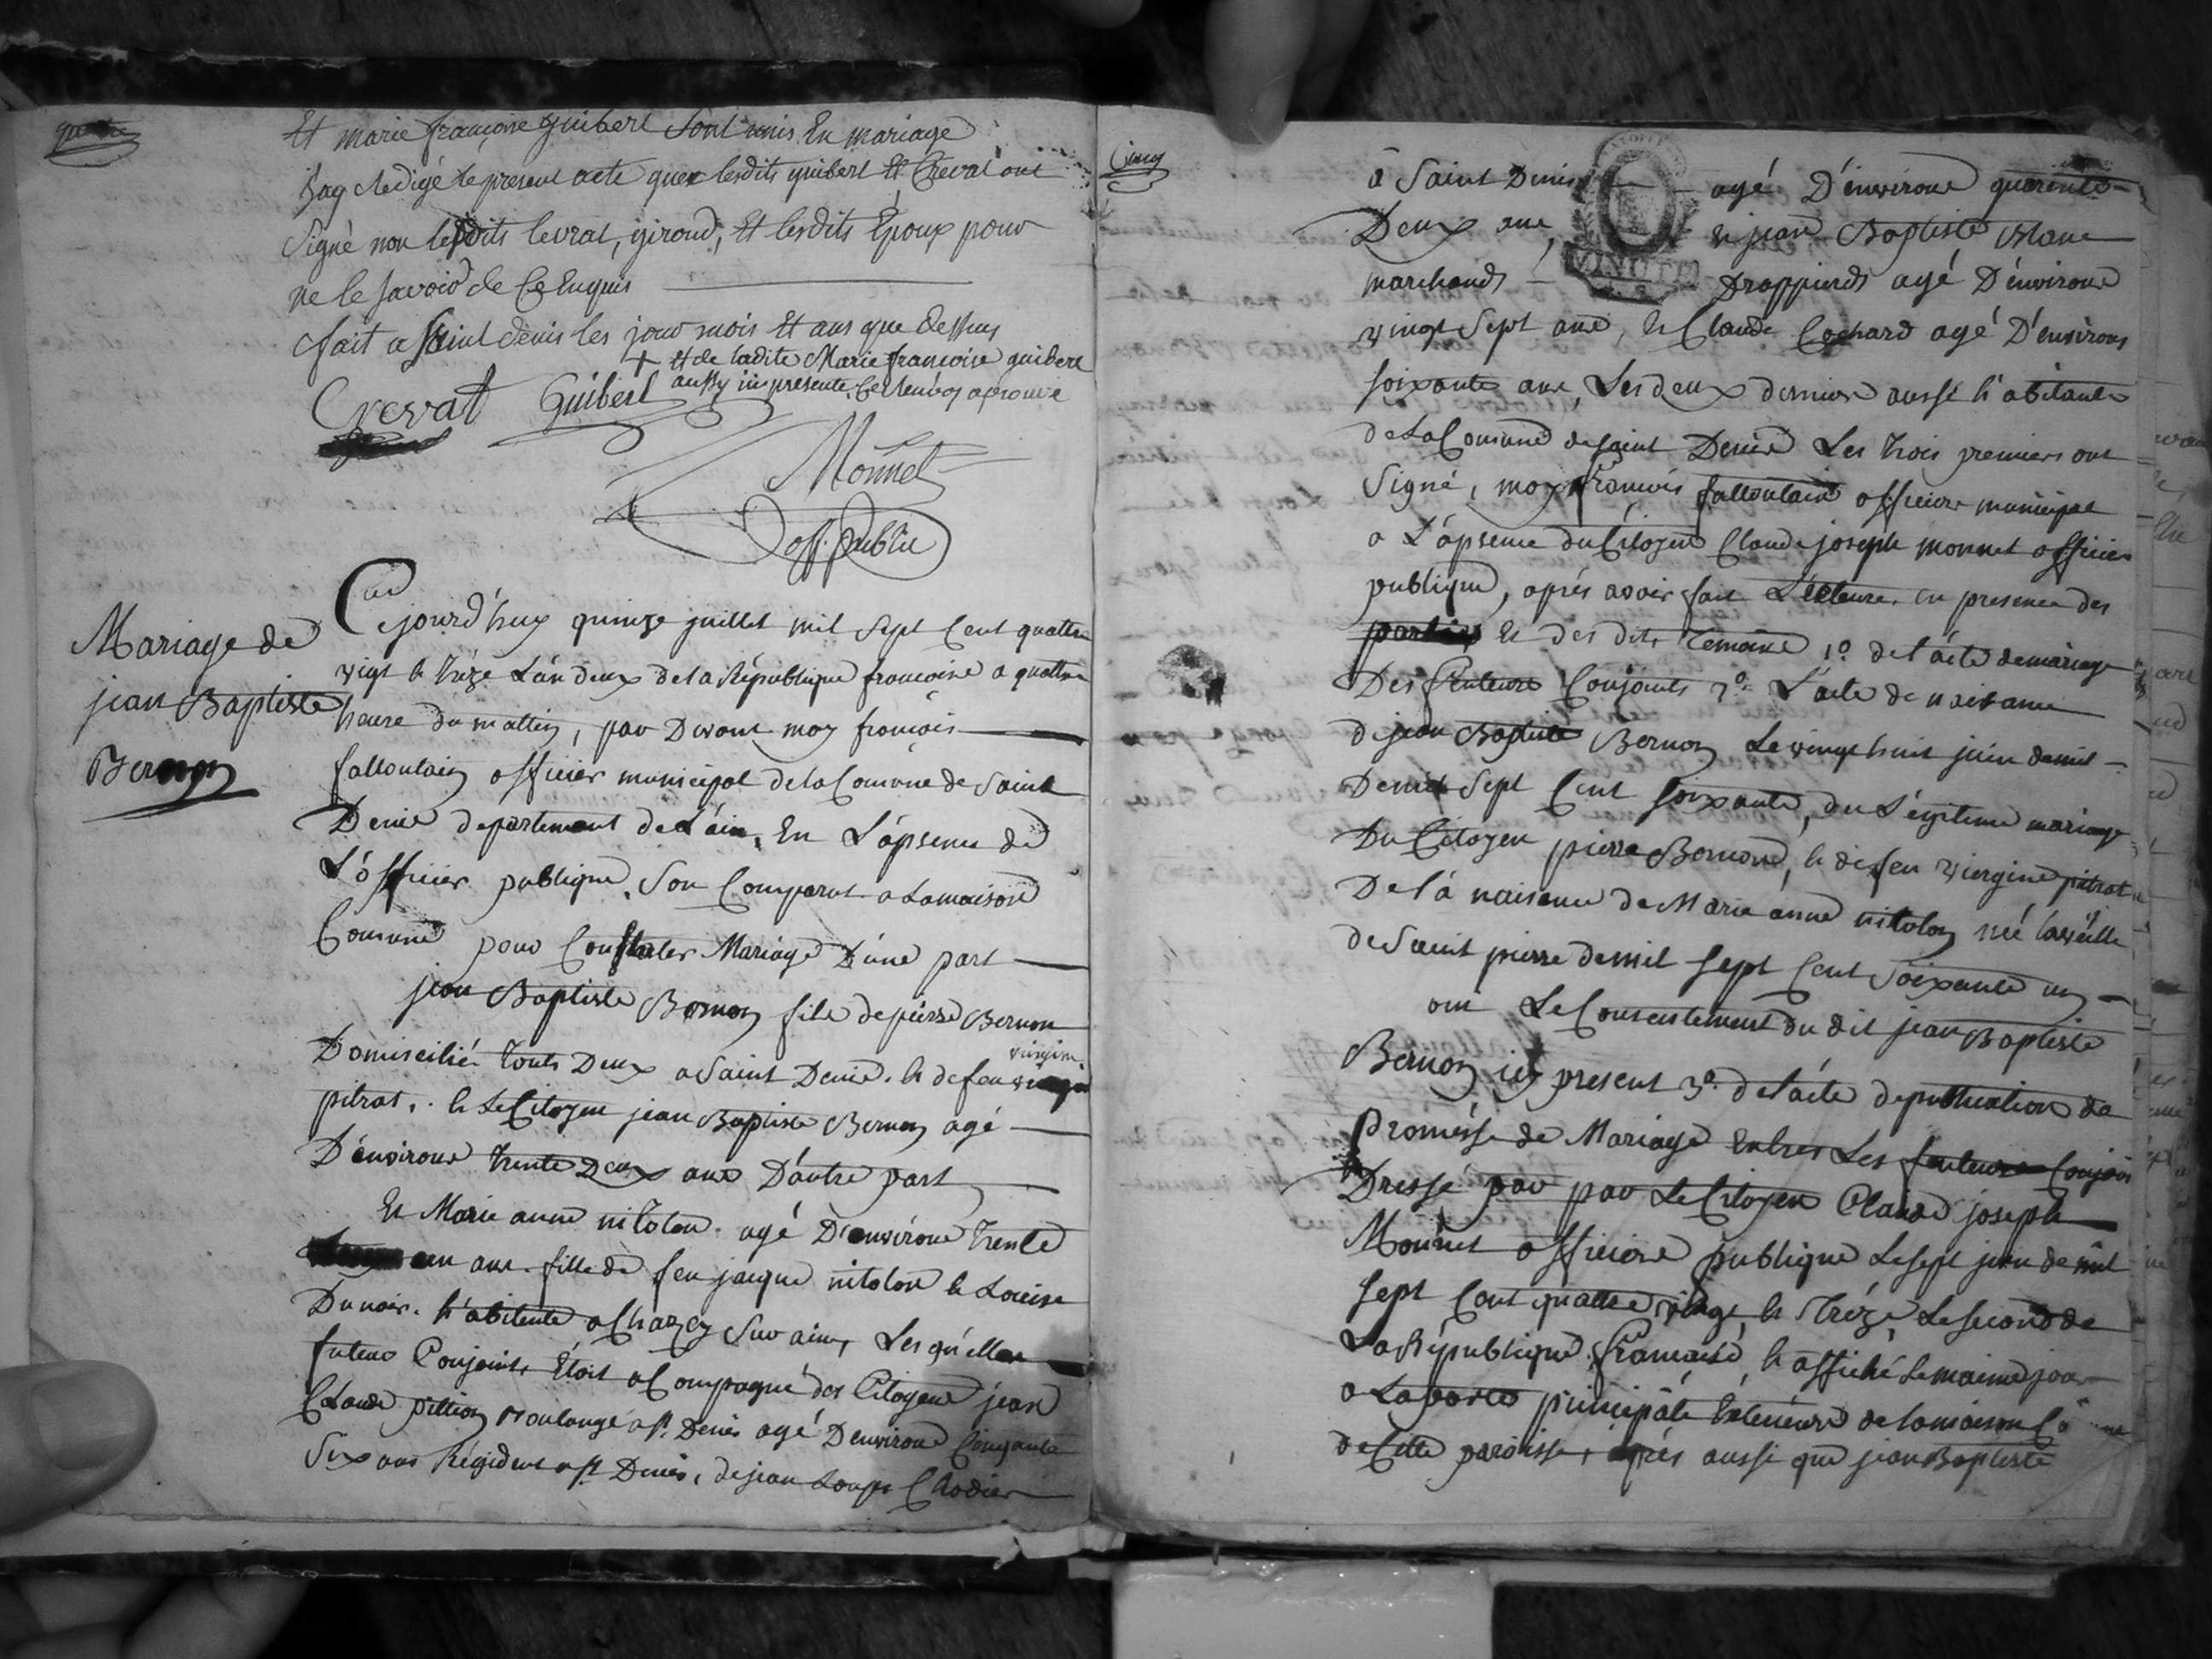 quatre
Et marie françoise guibert Sont unis En mariage
J'ay Redigé le present acte que lesdits guibert Et Crevat ont
Signé non lesdits levrat, giroud, Et lesdits Epoux pour
ne le Savoir de Ce Enquis
fait a Saint denis les jour mois Et ans que dessus
+ et de ladite Marie francoise guibert
aussy icy presente. Ce Renvoy aprouvé
Crevat Guibert
Monnet
off. Public
Mariage de
jean Baptiste
Bernon
Cejourd'huy quinze juillet mil Sept Cent quattre
vingt & trèze L'an deux de la République francoise a quattre
heure du mattin, par Devant moy francois
falloulain officier municipal de la Comune de Saint
Denis departement de L'ain, En L'apsence de
L'officier publique. Son Comparut a Lamaison
Comune pour Constater Mariage D'une part
jean Baptiste Bernon fils de pierre Bernon
Domiscilié touts Deux a Saint Denis. & de feu virgine
pitrat. & le Citoyen jean Baptiste Bernon agé
D'environs trente Deux ans D'autre part
Et Marie anne nitolon agé D'environs trente
un ans. fille de feu jacque nitolon & Louise
Dunoir. h'abitente a Chazey Sur ain, Lesqu'elles
futeurs Conjoints Étoit aCompagné des Citoyens jean
Claude pittion Boulangé a St. Denis agé D'environs Cinquante
Six ans Régident a St Denis, de jean Loup Chodier
Cinq
à Saint Denis agé D'environs quarente
Deux ans, & jean Baptiste Blanc
marchands Drappierds agé D'environs
vingt Sept ans, & Claude Cochard agé D'environs
soixante ans, Les deux derniers aussi h'abitants
de La Comune de Saint Denis Les trois premiers ont
Signé, moy francois falloulain officier municipal
a L'apsence du Citoyen Claude joseph monnet officier
publique, après avoir fait Lecteure en presence des
parties Et des dits temoins 1º. de l'acte de mariage
Des feuteurs Conjoints 2º. L'acte de naisance
de jean Baptiste Bernon Le vingt huit juin de mil
De mil Sept Cent Soixante, du L'égitime mariage
Du Citoyen pierre Bernon, & de feu virgine pitrat
De la naisence de Marie anne nitolon née la veille
de Saint pierre de mil Sept Cent Soixante un
oui Le Consentement du dit jean Baptiste
Bernon icy present 3º. de l'acte de publication de
Promèsse de Mariage Entres Les feuteurs Conjoin
Dressé par par Le Citoyen Claude joseph
Monnet officiere publique Le sept juin de mil
Sept Cent quattre vingt & trèze Le second de
La République francaise, & affiché Le maime jour
a La porte principâle Exterieure de la maison
de Cette paroisse, après aussi que jean Baptiste
MINUTE